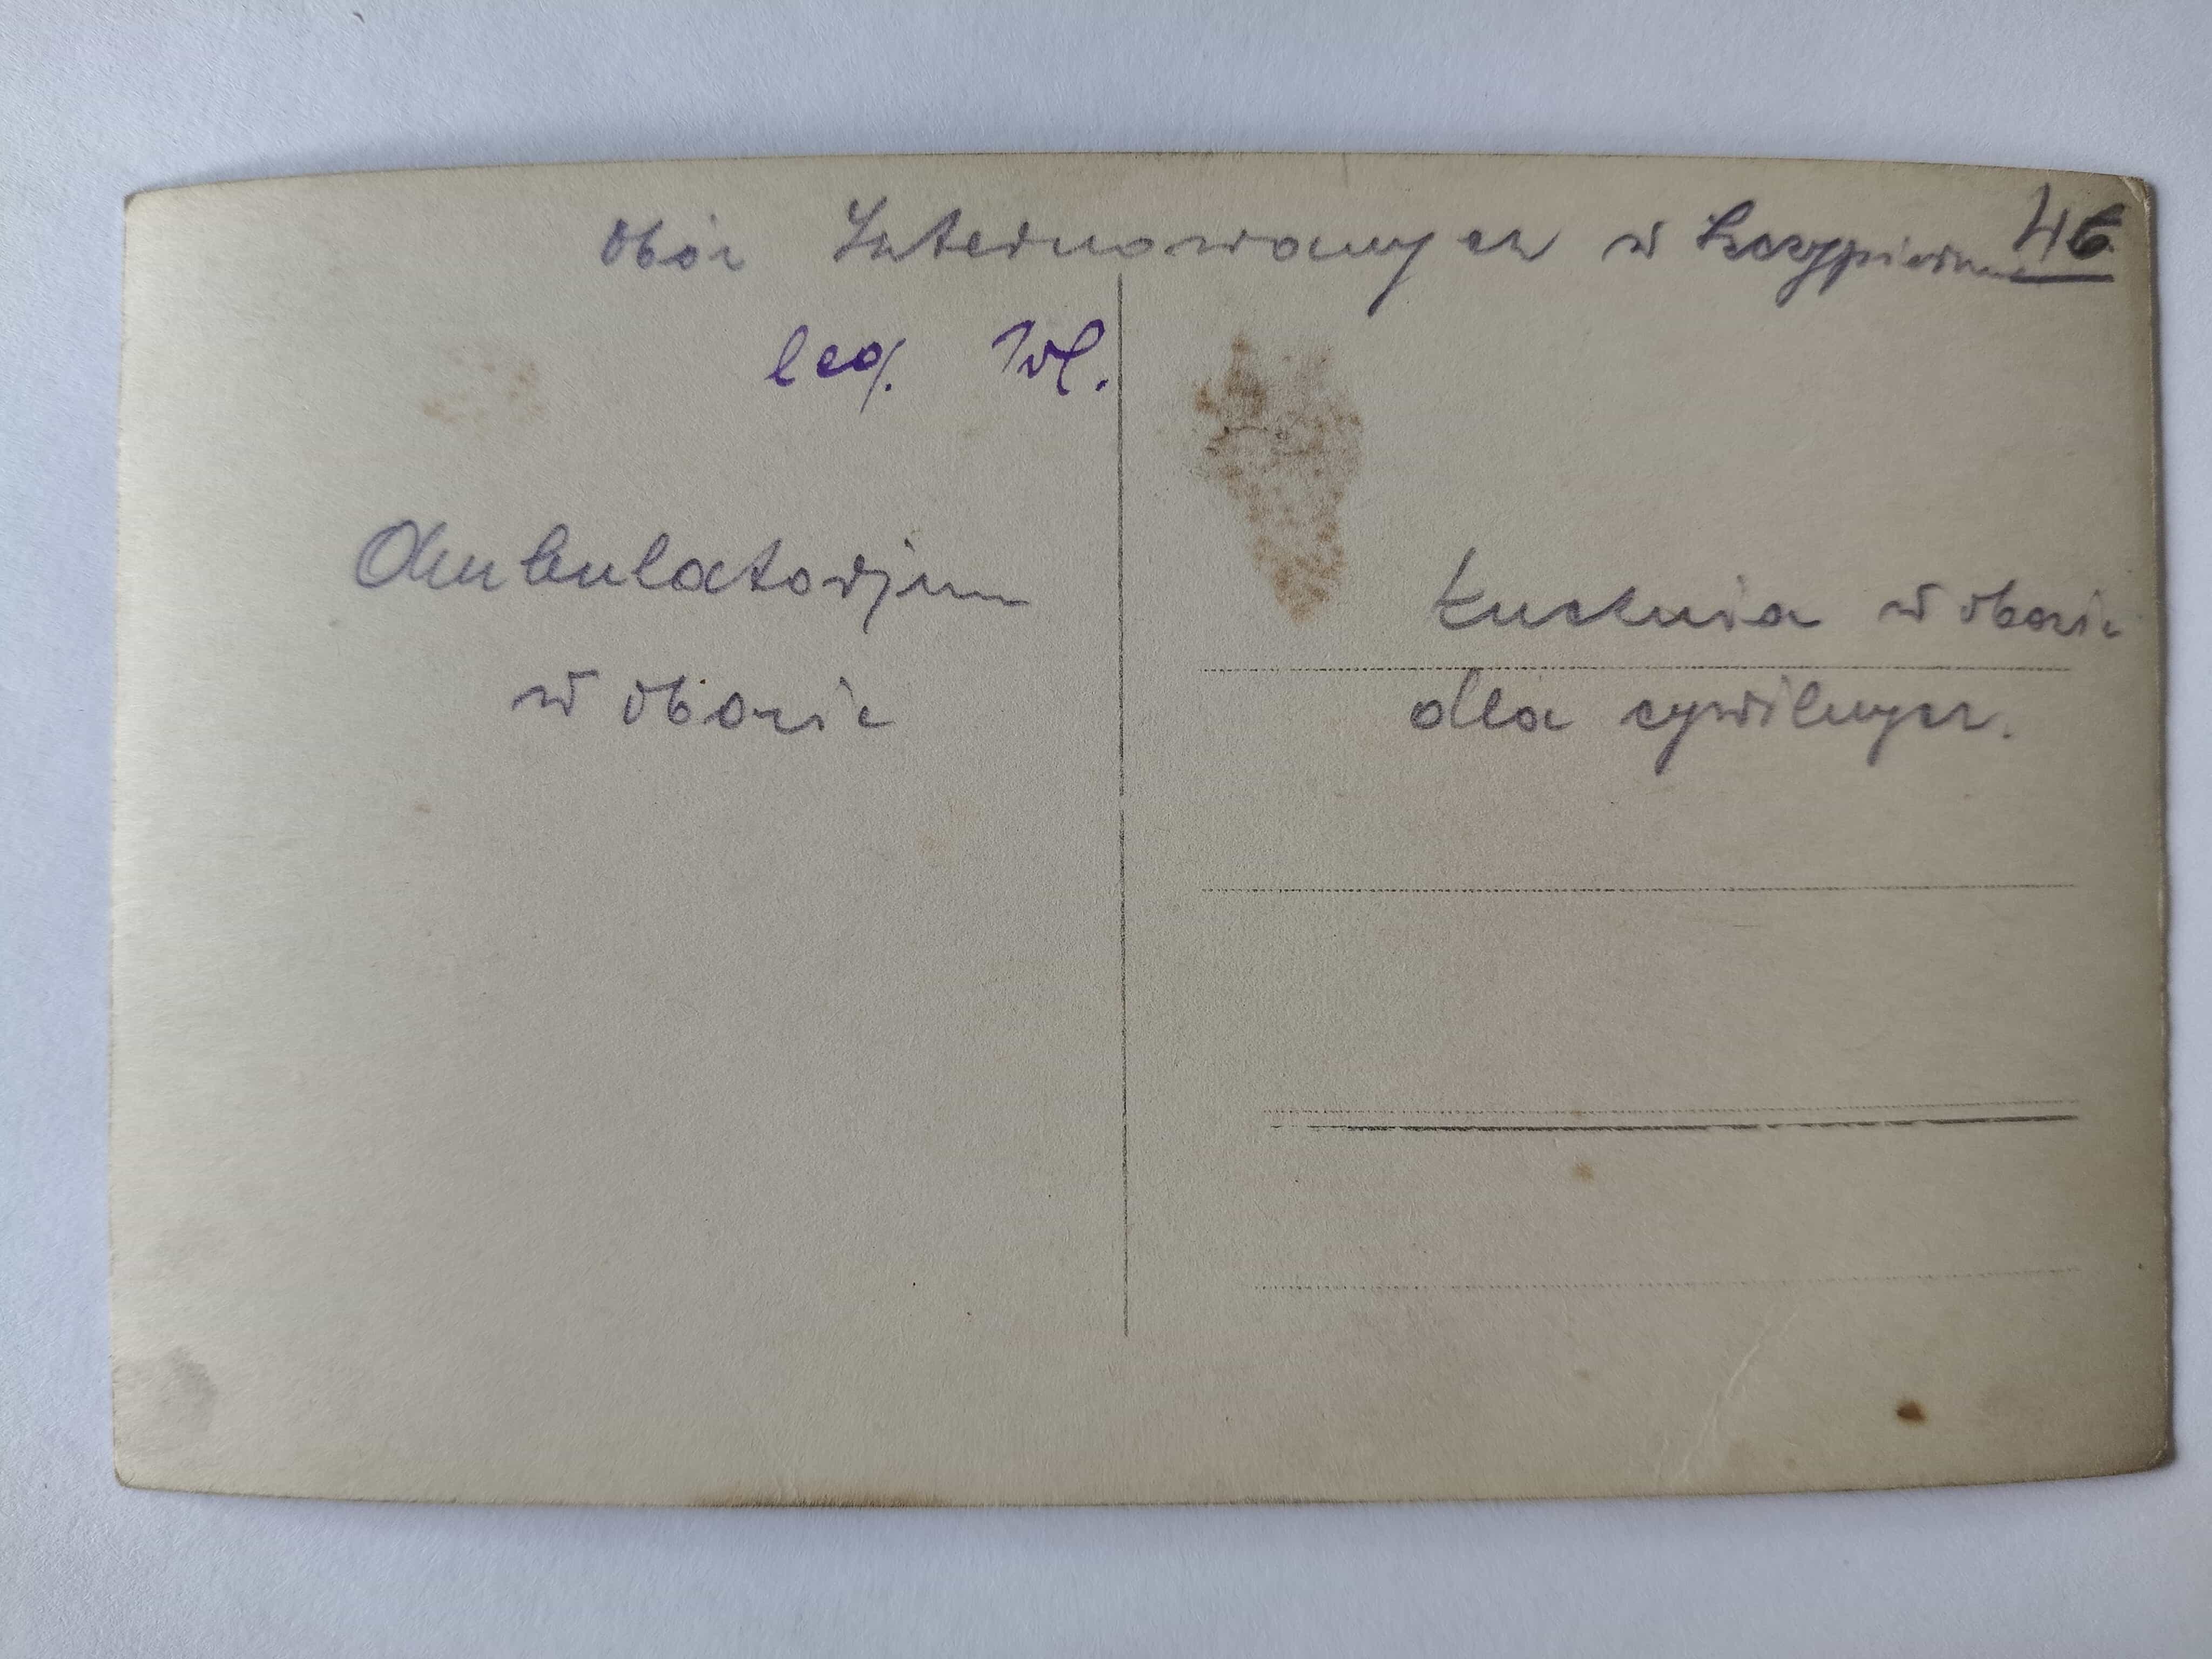 46
Obóz Internowanych w Szczypiornie
leg. Pol.
Ambulatorjum
w obozie
Kuchnia w obozie
dla cywilnych.